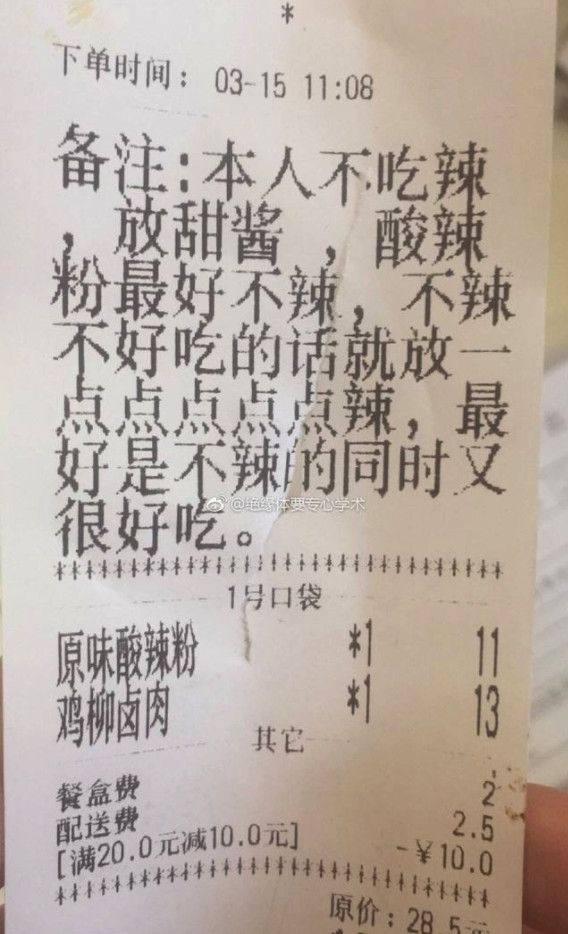 *
下单时间： 03-15 11:08
备注:本人不吃辣
，放甜酱，酸辣
粉最好不辣，不辣
不好吃的话就放一
点点点点点辣，最
好是不辣的同时又
很好吃。
@绝缘体要专心学术
********************************
1号口袋
原味酸辣粉 *1 11
鸡柳卤肉 *1 13
其它
餐盒费 2
配送费 2.5
[满20.0元减10.0元] -￥10.0
********************************
原价：28.5元